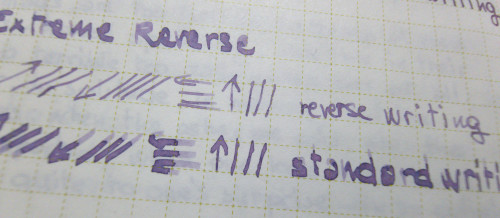 Extreme Reverse
reverse writing
standard writi